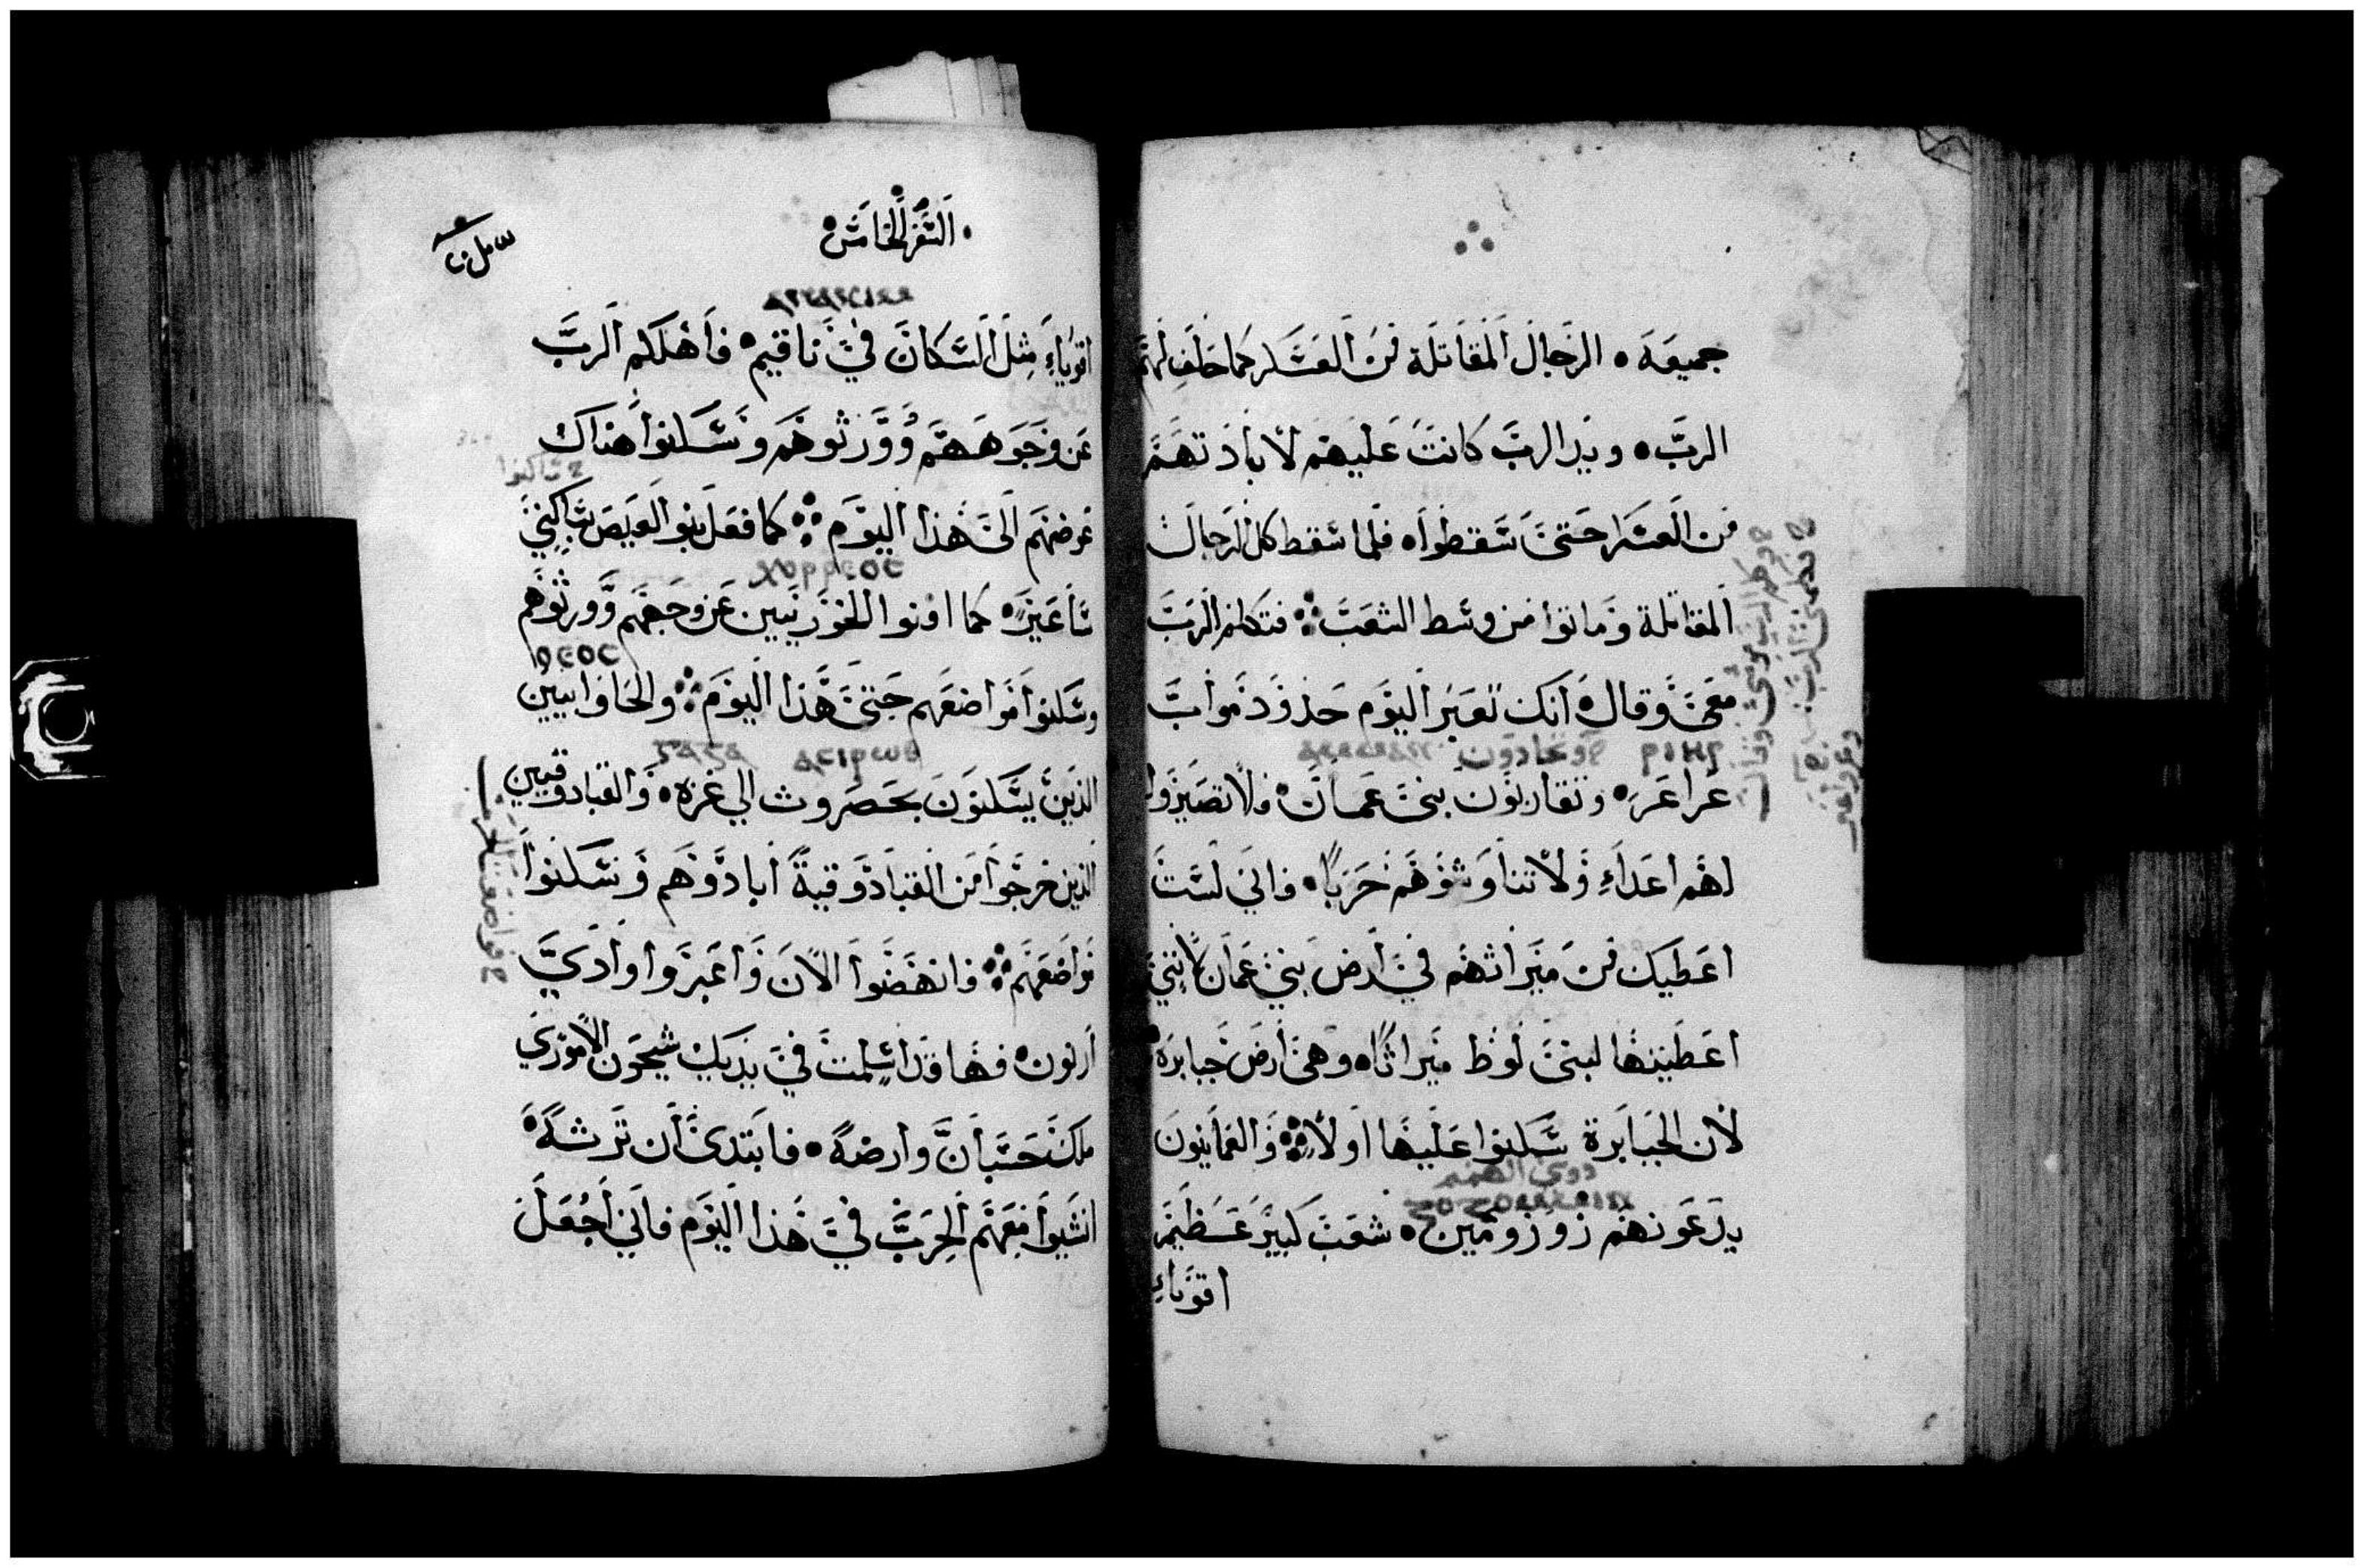 جميعه • الرجال المقاتلة من العسكر كما حلف لهم
الرب • ويد الرب كانت عليهم لابادتهم
من العسكر حتى سقطوا • فلما سقط كل الرجال
المقاتلة وماتوا من وسط الشعب ∴ فتكلم الرب
معى وقال انك تعبر اليوم حدود مواب
عراعر • وتقاربون بنى عمان • فلا تصيروا
لهم اعداء ولا تناوشوهم حربا • فانى لست
اعطيك من ميراثهم فى ارض بنى عمان لاننى
اعطيتها لبنى لوط ميراثا • وهى ارض جبابره •
لان الجبابرة سكنوا عليها اولا ∴ والعمانيون
ذوى الهمم
يدعونهم زوزومين • شعب كبير عظيم
اقوياء
• السفر الخامس •
اقوياء مثل السكان فى ناقيم • فاهلكهم الرب
من وجوههم وورثوهم وسكنوا هناك
ساكنوا
عوضهم الى هذا اليوم ∴ كما فعل بنو العيص ساكنى
ساعير • كما افنوا الخوريين عن وجههم وورثوهم
وسكنوا مواضعهم حتى هذا اليوم ∴ والحاوايين
الذين يسكنون بحصروث الى غزه • والقبادوقيين
الذين خرجوا من القبادوقية ابادوهم وسكنوا
مواضعهم ∴ فانهضوا الان واعبروا وادى
ارنون • فها قد اسلمت فى يديك سيحون الامورى
ملك حسبان وارضه • فابتدى ان ترثه •
انشبوا معهم الحرب فى هذا اليوم فانى اجعل